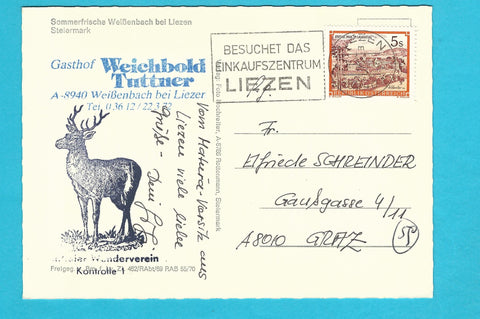 Sommerfrische Weißenbach bei Liezen
Steiermark
Gasthof Weichbold
Tuttner
A-8940 Weißenbach bei Liezen
Tel. 0 36 12 / 22 3 72
BESUCHET DAS
EINKAUFSZENTRUM
LIEZEN
LIEZEN
5s
Foto Hochreiter, A-8786 Rottenmann, Steiermark
Vom Matura-Vorsitz aus
Liezen viele liebe
Grüße -
Fr.
Elfriede SCHREINDER
Gaußgasse 4/11
A8010 GRAZ
Wanderverein
Kontrolle 1
Freigeg. 482/RAbt/69 RAB 55/70